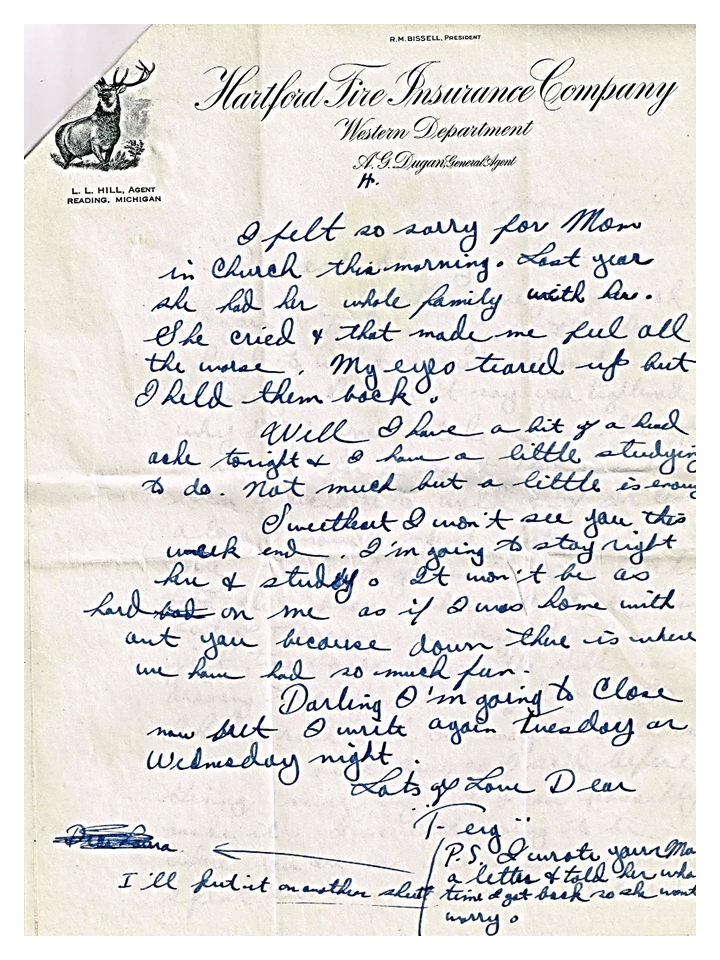 R.M. BISSELL, PRESIDENT
Hartford Fire Insurance Company
Western Department
A.G. Dugan General Agent
H.
L. L. HILL, AGENT
READING, MICHIGAN
I felt so sorry for Mom
in Church this morning. Last year
she had her whole family with her.
She cried & that made me feel all
the worse. My eyes teared up but
I held them back.
Well I have a bit of a head
ache tonight & I have a little studying
to do. Not much but a little is enoug
Sweetheart I won't see you this
week end. I'm going to stay right
here & study. It won't be as
hard bad on me as if I was home with
out you because down there is where
we have had so much fun.
Darling I'm going to Close
now but I write again Tuesday or
Wednesday night.
Lots of Love Dear
"Ferg"
P.S. I wrote your Ma
a letter & told her wha
time I got back so she wont
worry.
I'll put it on another sheet